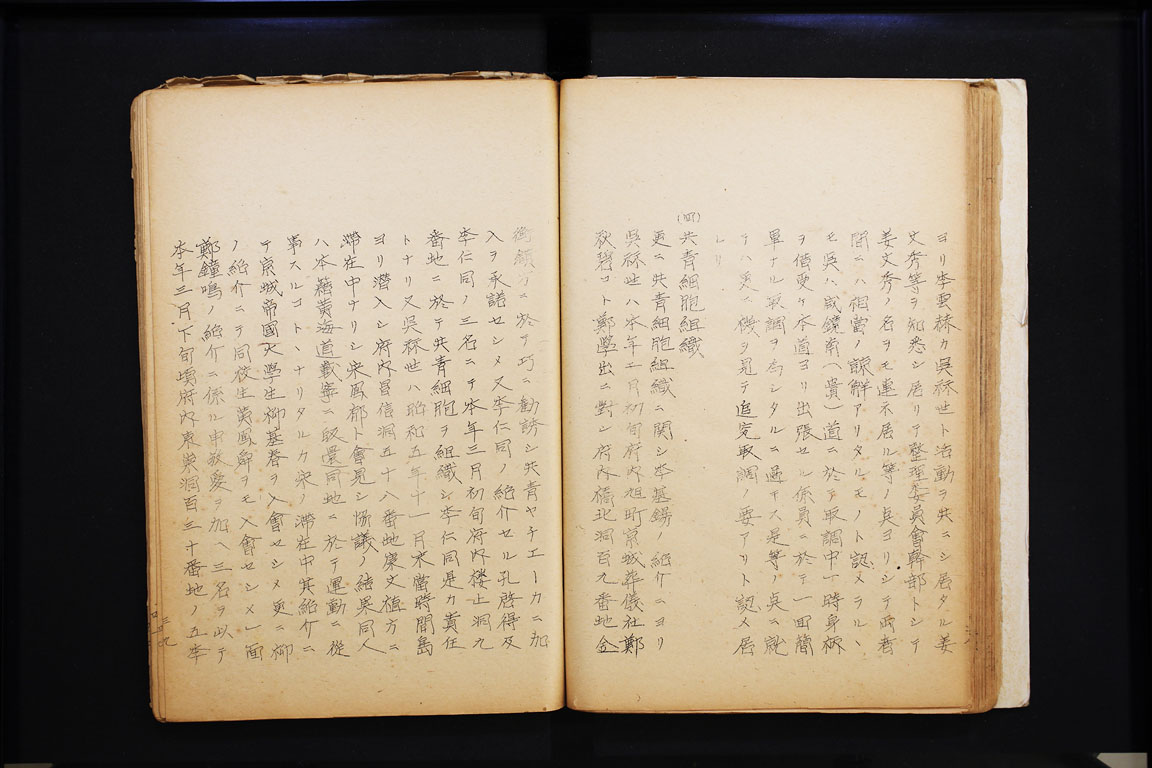 ヨリ李雲赫カ呉秌世ト活動ヲ共ニシ居タル姜
文秀等ヲ知悉シ居リテ整理委員會幹部トシテ
姜文秀ノ名ヲモ連ネ居ル等ノ点ヨリシテ両者
間ニハ相當ノ諒解アリタルモノト認メラルヽ
モ呉ハ咸鏡南(貴)道ニ於テ取調中一時身柄
ヲ借受ケ本道ヨリ出張セル係員ニ於テ一回簡
單ナル取調ヲ為シタルニ過キス是等ノ点ニ就
テハ更ニ機ヲ見テ追究取調ノ要アリト認メ居
レリ
(四)共青細胞組織
更ニ共青細胞組織ニ関シ李基錫ノ紹介ニヨリ
呉秌世ハ本年二月初旬府内旭町京城葬儀社鄭
秋碧コト鄭學出ニ對シ府内橋北洞百九番地金
衡顯方ニ於テ巧ニ勸誘シ共青ヤチエーカニ加
入ヲ承諾セシメ又李仁同ノ紹介セル孔啓得及
李仁同ノ三名ニテ本年三月初旬府内樓上洞九
番地ニ於テ共青細胞ヲ組織シ李仁同是カ責任
トナリ又呉秌世ハ昭和五年十一月末當時間島
ヨリ潜入シ府内昌信洞五十八番地慶文植方ニ
滞在中ナリシ宋鳳郁ト會見シ協議ノ結果同人
ハ本籍黄海道載寧ニ皈還同地ニ於テ運動ニ從
事スルコトヽナリタルカ宋ノ滞在中其紹介ニ
テ京城帝國大學生柳基春ヲ入會セシメ更ニ柳
ノ紹介ニテ同校生黄鳳鄕ヲモ入會セシメ一面
鄭鐘鳴ノ紹介ニ係ル申敬愛ヲ加ヘ三名ヲ以テ
本年三月下旬頃府内東崇洞百三十番地ノ五李